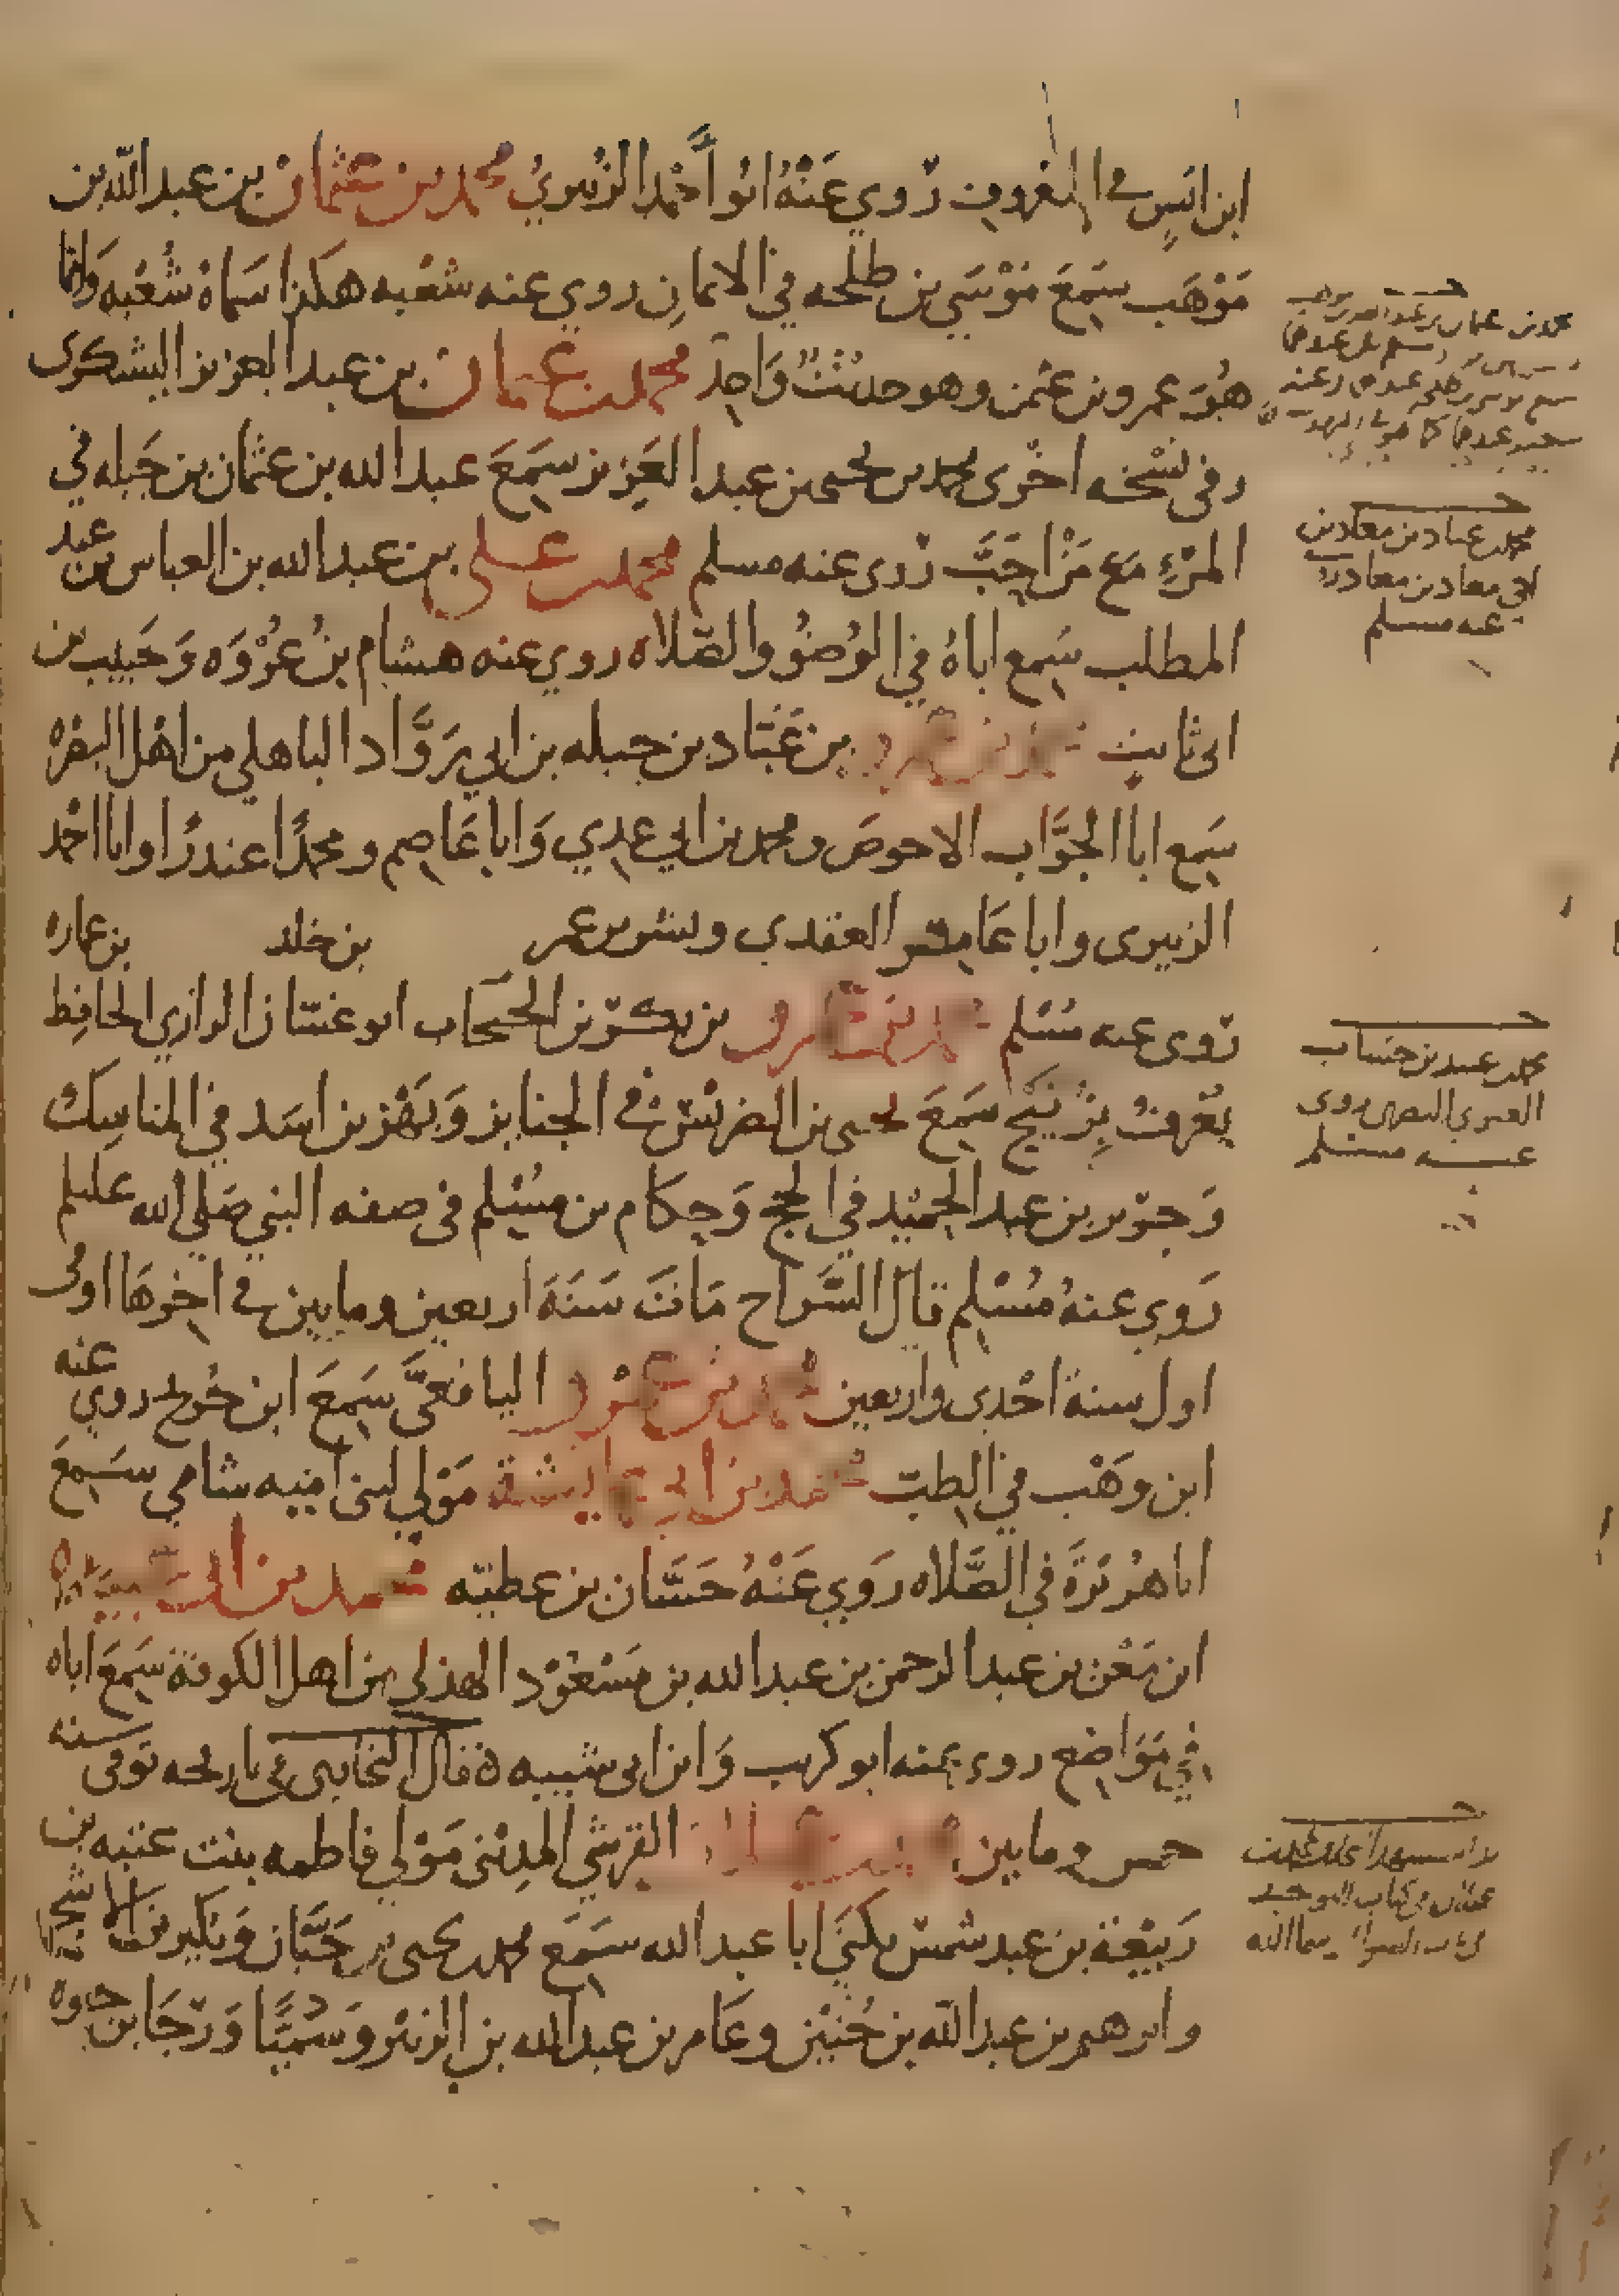 ابن انس في المعروف روي عنه ابو احمد الزبيري محمد بن عثمان بن عبد الله بن
موهب سمع موسي بن طلحه في الايمان روي عنه شعبه هكذا سماه شعبه وانما
هو عمرو بن عثمن وهو حديث واحد محمد بن عثمان بن عبد العزيز اليشكري
وفي نسخه اخرى محمد بن يحيى بن عبد العزيز سمع عبد الله بن عثمان بن جبله في
المرء مع من احب روى عنه مسلم محمد بن علي بن عبد الله بن العباس بن عبد
المطلب سمع اباه في الوضو والصلاه روي عنه هشام بن عروه وحبيب بن
ابي ثابت محمد بن عمرو بن عباد بن جبله بن ابي رواد الباهلي من اهل البصره
سمع ابا الجواب الاحوص ومحمد بن ابي عدي وابا عاصم ومحمدا غندرا وابا احمد
الزبيري وابا عامر العقدي وبشر بن عمر بن خلد بن عماره
روى عنه مسلم محمد بن عمرو بن بكر بن الحجاب ابو غسان الرازي الحافظ
يعرف بزنيج سمع يحيى بن الضريس في الجنايز وبهز بن اسد في المناسك
وجرير بن عبد الحميد في الحج وحكام بن مسلم في صفه النبي صلي الله عليلم
روي عنه مسلم قال السراج مات سنة اربعين ومايين في اخرها او في
اول سنة احدى واربعين محمد بن عمرو اليافعي سمع ابن جريج روي عنه
ابن وهب في الطب محمد بن ابي عايشة مولي لبني اميه شامي سمع
ابا هريرة في الصلاه روي عنه حسان بن عطيه محمد بن ابي عبيدة
ابن معن بن عبد الرحمن بن عبد الله بن مسعود الهذلي من اهل الكوفة سمع اباه
في مواضع روي عنه ابو كريب وابن ابي شيبه قال البخاري في تاريخه توفي سنه
خمس ومايين محمد بن عجلان القرشي المدني مولي فاطمه بنت عتبه بن
ربيعة بن عبد شمس يكني ابا عبد الله سمع محمد بن يحيى بن حبان وبكير بن الاشج
وابرهيم بن عبد الله بن حنين وعامر بن عبد الله بن الزبير وسميا ورجا بن حيوه
محمد بن عثمان بن عبد الله بن موهب
محمد بن عباد بن معاذ بن
اخي معاذ بن معاذ روى
عنه مسلم
محمد بن عبيد بن حساب
الغبري البصري روى
عنه مسلم